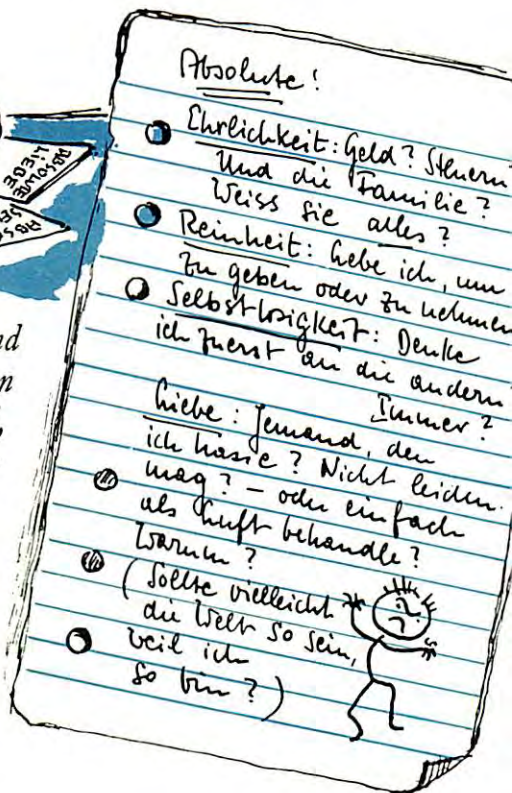 ABSOLUTE
LIEBE
nd
n
Absolute!
Ehrlichkeit: Geld? Steuern
Und die Familie?
Weiss sie alles?
Reinheit: Lebe ich, um
zu geben oder zu nehmen
Selbstlosigkeit: Denke
ich zuerst an die andern
Immer?
Liebe: Jemand, den
ich hasse? Nicht leiden
mag? – oder einfach
als Luft behandle?
Warum?
(Sollte vielleicht
die Welt so sein,
weil ich
so bin?)